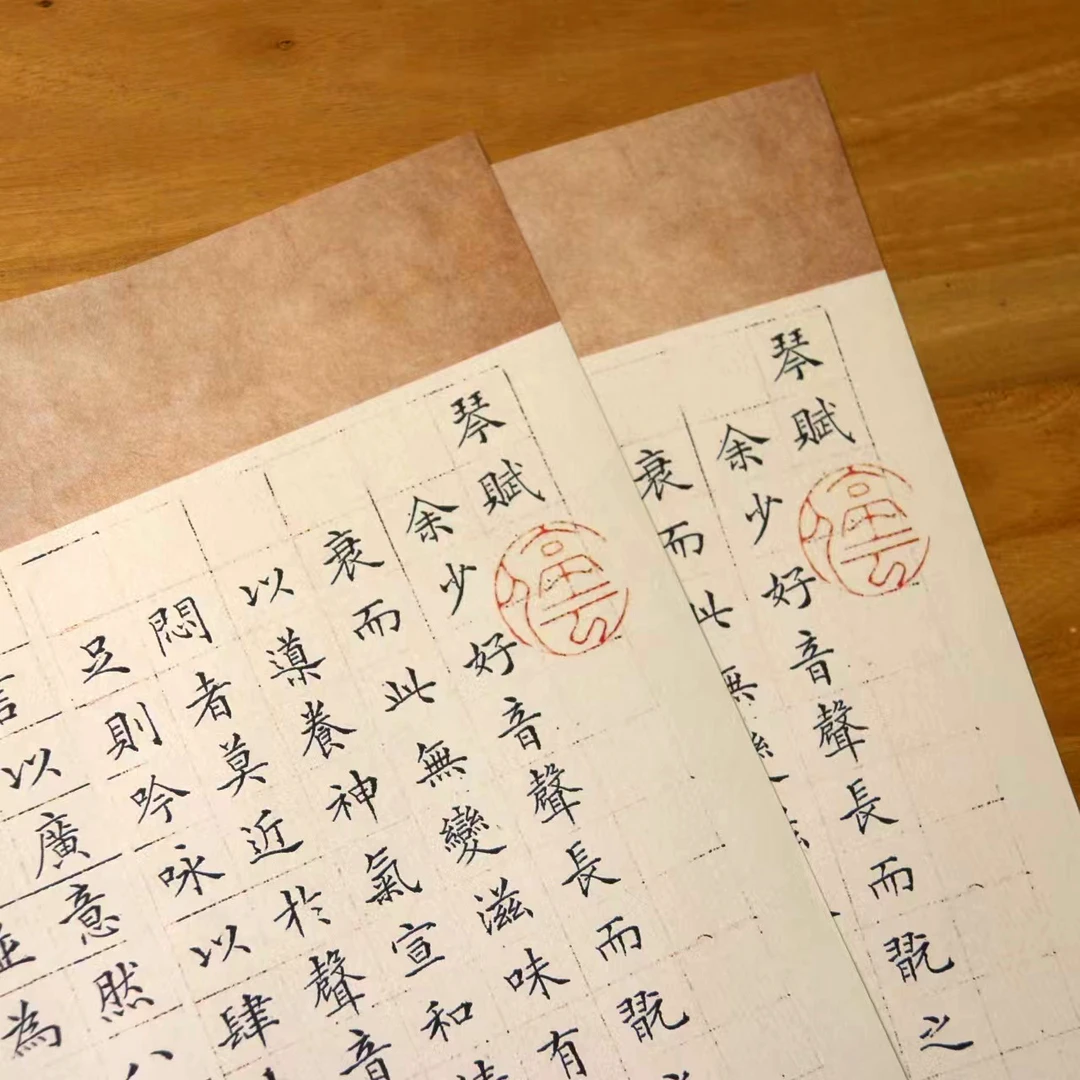 琴賦
余少好音聲長而翫
衰而此無變滋味有
以導養神氣宣和
悶者莫近於聲音
足則吟咏以肆
言以廣意然八
並為
琴賦
余少好音聲長而翫之
衰而此無